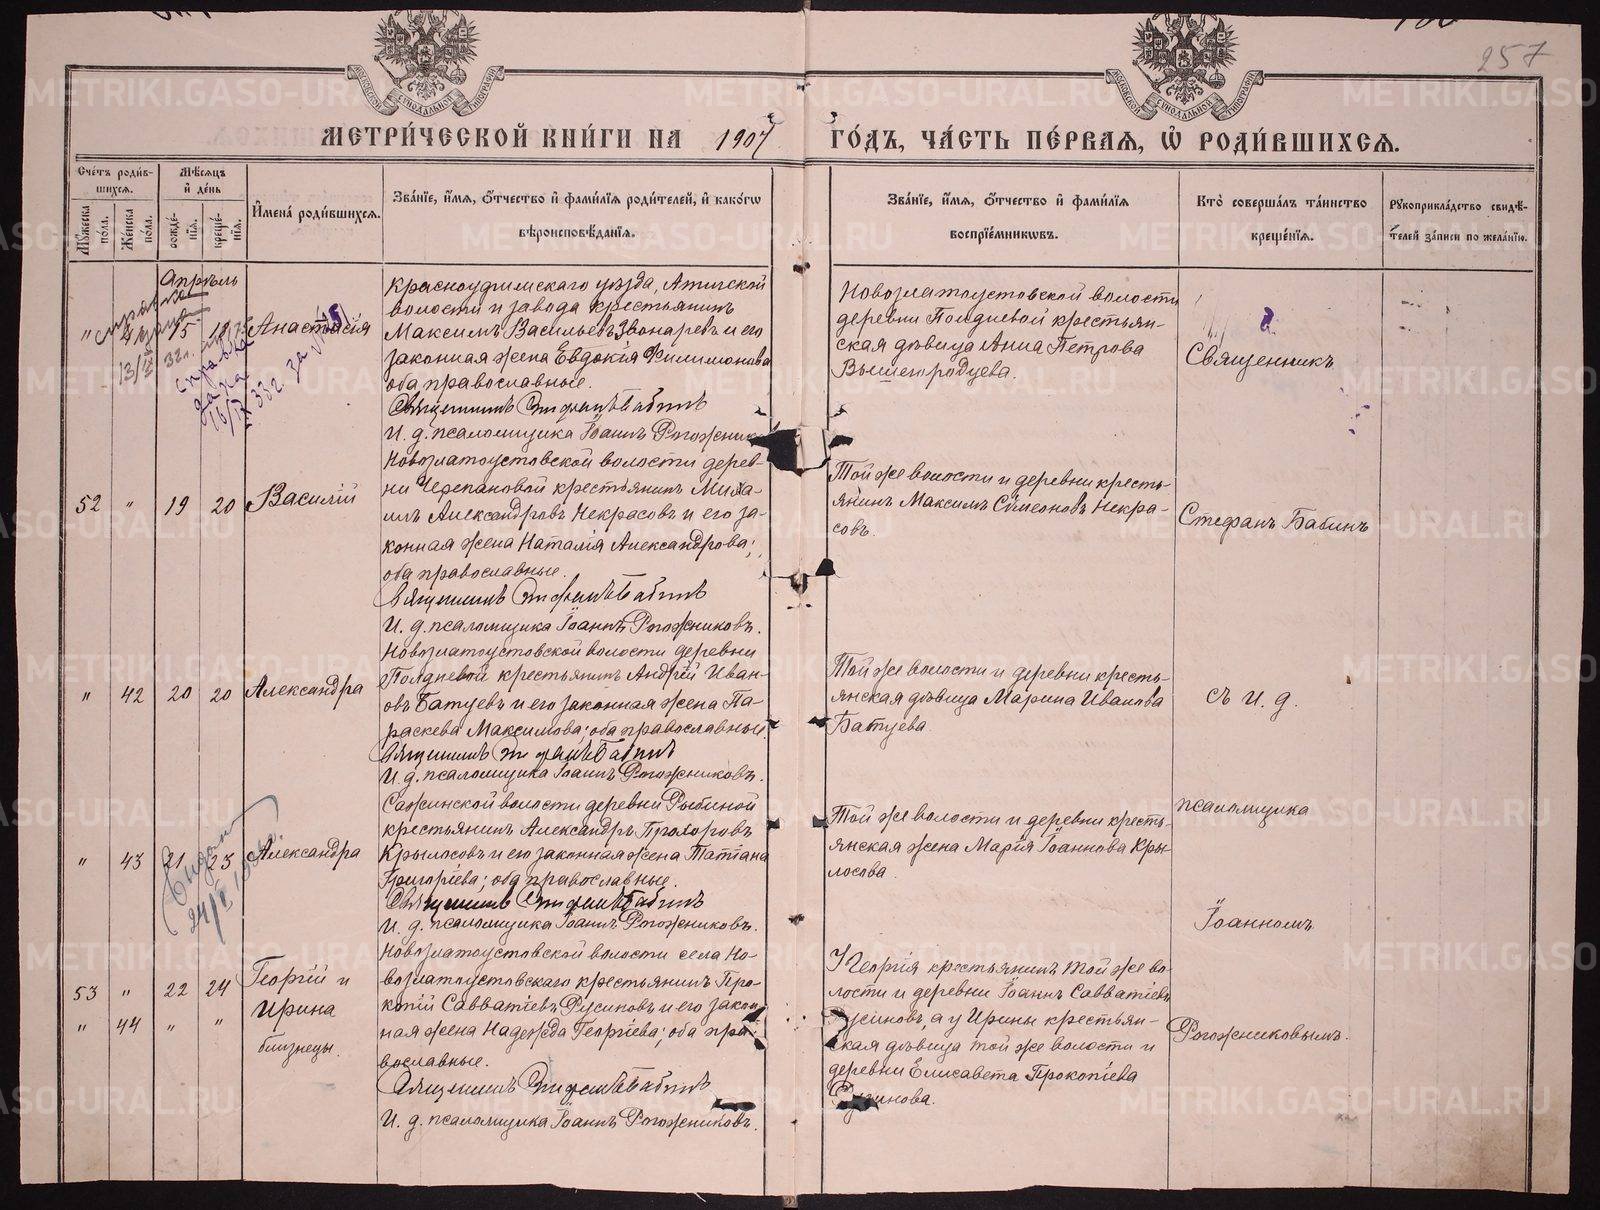 257
МЕТРИ́ЧЕСКОЙ КНИ́ГИ НА 1907 ГО́ДЪ, ЧА́СТЬ ПЕ́РВАЯ, Ѿ РОДИ́ВШИХСЯ.
Сче́тъ роди́в-
шихся.
Мꙋ́жеска по́ла.
Же́нска по́ла.
Мѣ́сяцъ
и҆ де́нь
рожде́-
нїя.
креще́-
нїя.
И҆мена̀ роди́вшихся.
Зва́нїе, и҆́мя, ѻ҆́тчество и҆ фами́лїя роди́телей, и҆ како́гѡ
вѣроисповѣ́данїя.
Зва́нїе, и҆́мя, ѻ҆́тчество и҆ фами́лїя
воспрїе́мникѡвъ.
Кто̀ соверша́лъ та́инство
креще́нїя.
Рꙋкоприкла́дство свидѣ́-
телей за́писи по жела́нїю.
Апрѣль
" 15 Анастасія
справка
дана
16/IX 33г за №
Красноуфимскаго уѣзда, Атигской
волости и завода крестьянинъ
Максимъ Васильевъ Звонаревъ и его
законная жена Евдокія Филимонова
оба православные.
Священникъ Стефанъ Бабинъ
И. д. псаломщика Іоаннъ Рогожников
Новозлатоустовской волости
деревни Полдневой крестьян-
ская дѣвица Анна Петрова
Вышегородцева.
Священникъ
52 " 19 20 Василій
Новозлатоустовской волости дерев-
ни Черепановой крестьянинъ Миха-
илъ Александровъ Некрасовъ и его за-
конная жена Наталія Александрова;
оба православные.
Священникъ Стефанъ Бабинъ
И. д. псаломщика Іоаннъ Рогожниковъ.
Той же волости и деревни кресть-
янинъ Максимъ Сѵмеоновъ Некра-
совъ.
Стефанъ Бабинъ
" 42 20 20 Александра
Новозлатоустовской волости деревни
Полдневой крестьянинъ Андрей Иван-
овъ Батуевъ и его законная жена Па-
раскева Максимова; оба православные.
Священникъ Стефанъ Бабинъ
И. д. псаломщика Іоаннъ Рогожниковъ.
Той же волости и деревни кресть-
янская дѣвица Марина Иванова
Батуева.
съ и. д.
" 43 21 23 Александра
Сажинской волости деревни Рыбиной
крестьянинъ Александръ Прохоровъ
Крылосовъ и его законная жена Татіана
Григоріева; оба православные.
Священникъ Стефанъ Бабинъ
И. д. псаломщика Іоаннъ Рогожниковъ.
Той же волости и деревни кресть-
янская жена Марія Іоаннова Кры-
лосова.
псаломщика
Іоанномъ
53 " 22 24 Георгій и
" 44 " " Ирина
близнецы.
Новозлатоустовской волости села Но-
возлатоустовскаго крестьянинъ Про-
копій Савватіевъ Русиновъ и его закон
ная жена Надежда Георгіева; оба пра-
вославные.
Священникъ Стефанъ Бабинъ
И. д. псаломщика Іоаннъ Рогожниковъ.
У Георгія крестьянинъ той же во-
лости и деревни Іоаннъ Савватіевъ
Русиновъ, а у Ирины крестьян-
ская дѣвица той же волости и
деревни Елисавета Прокопіева
Русинова.
Рогожниковымъ.
METRIKI.GASO-URAL.RU